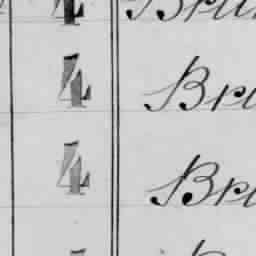 4 Bru
4 Bru
4 Bru